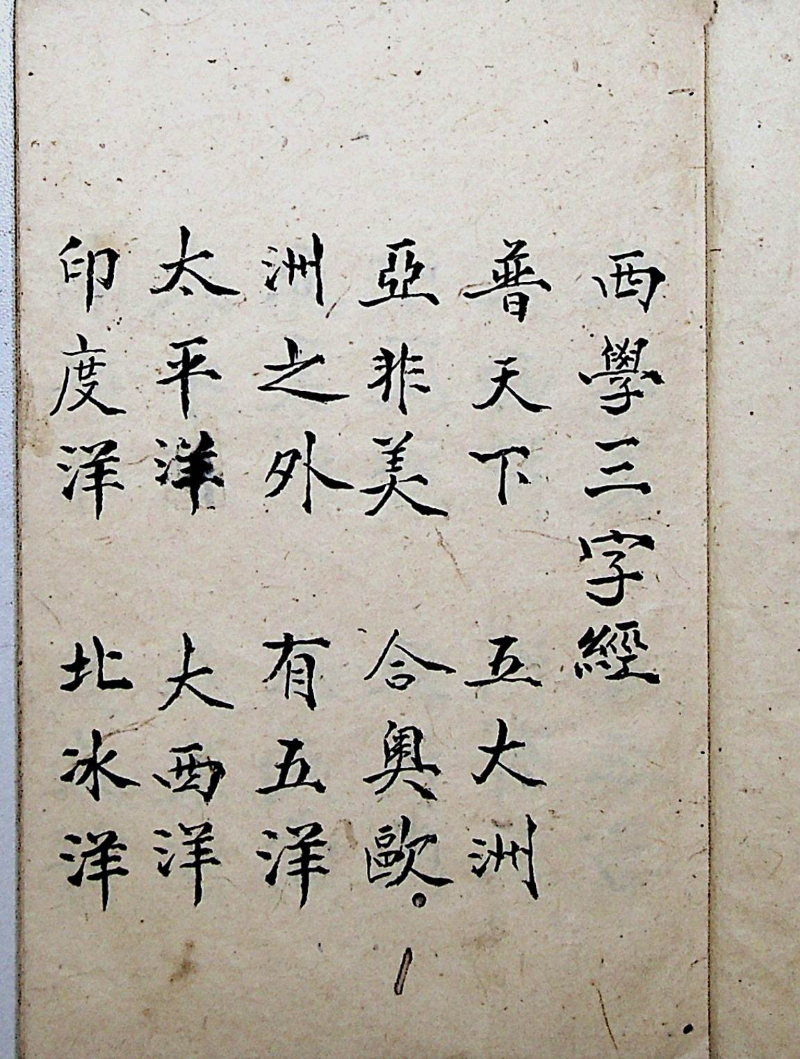 西學三字經
普天下 五大洲
亞非美 合奧歐。
洲之外 有五洋
太平洋 大西洋
印度洋 北冰洋